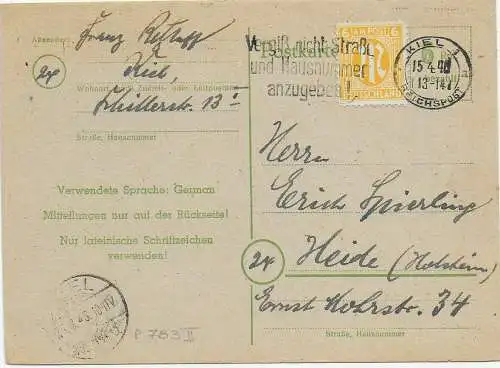 Absender:
Franz
24
Kiel,
Wohnort, auch Zustell- oder Leitpostamt
Schillerstr. 13 I
Straße, Hausnummer
Verwendete Sprache: German
Mitteilungen nur auf der Rückseite!
Nur lateinische Schriftzeichen
verwenden!
KIEL
P 783 II
Postkarte
Vergiß nicht Straße
und Hausnummer
anzugeben!
6 AM POST 6
DEUTSCHLAND
KIEL 1
15.4.46
13-14
REICHSPOST
Herrn
Erich Spierling
24 Heide (Holstein)
Ernst Mohrstr. 34
Straße, Hausnummer